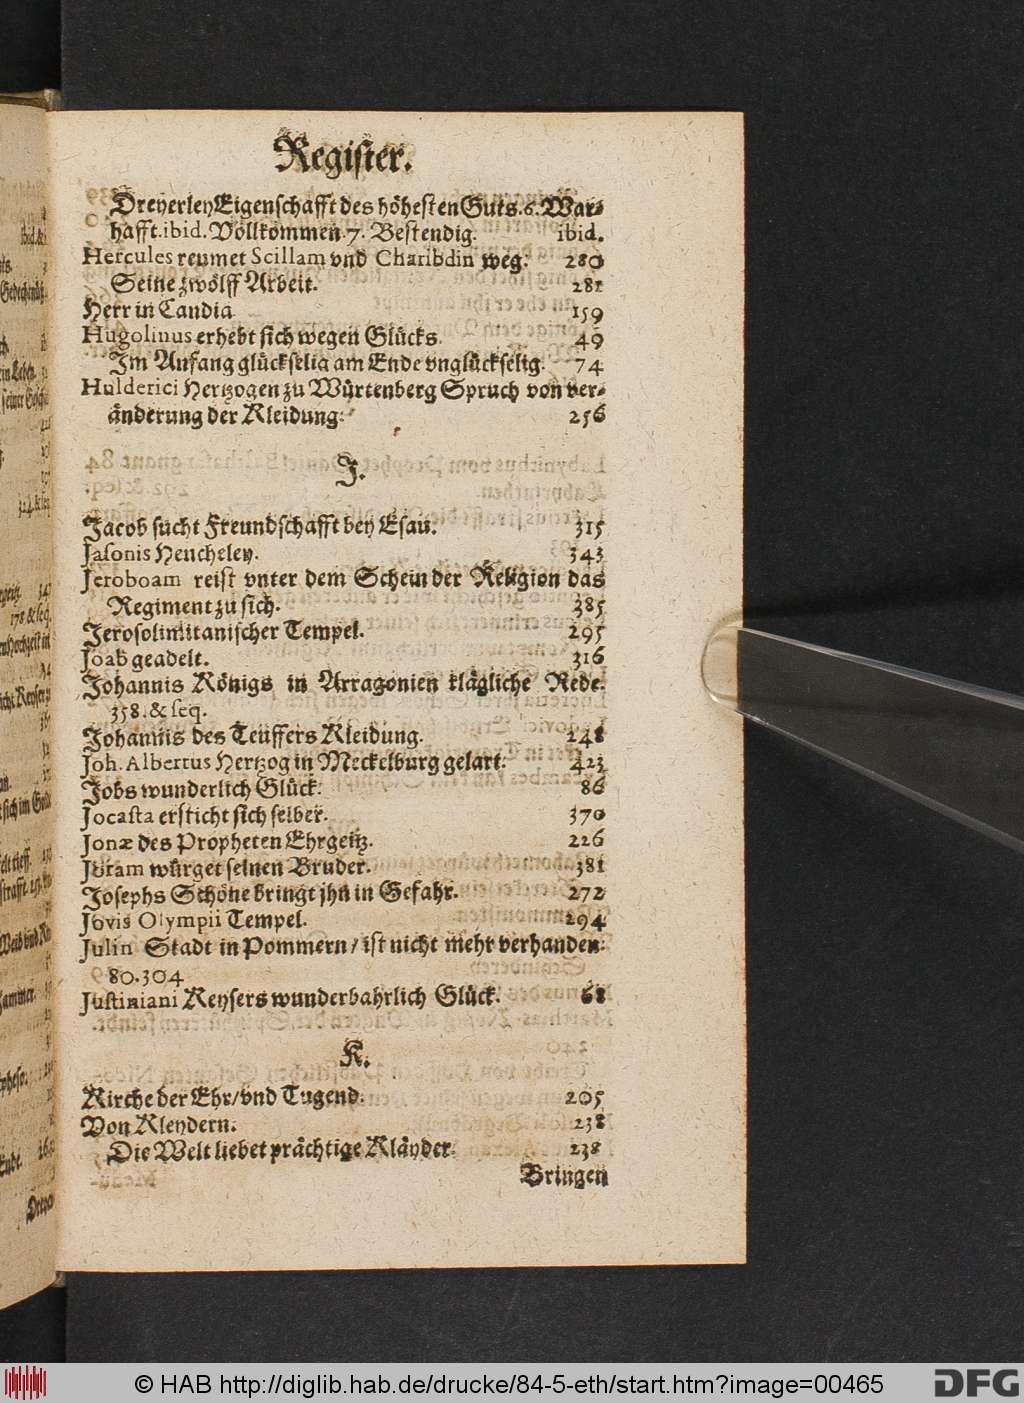 Register.
Dreyerley Eigenschafft des höhesten Guts. 6. War-
hafft. ibid. Vollkommen. 7. Bestendig. ibid.
Hercules reumet Scillam vnd Charibdin weg. 280
Seine zwölff Arbeit. 281
Herr in Candia 159
Hugolinus erhebt sich wegen Glücks. 49
Im Anfang glückselig am Ende vnglückselig. 74
Hulderici Hertzogen zu Würtenberg Spruch von ver-
änderung der Kleidung. 256
J.
Jacob sucht Freundschafft bey Esau. 315
Jasonis Heucheley. 343
Jeroboam reist vnter dem Schein der Religion das
Regiment zu sich. 385
Jerosolimitanischer Tempel. 295
Joab geadelt. 316
Johannis Königs in Arragonien klägliche Rede.
358. & seq.
Johannis des Teuffers Kleidung. 248
Joh. Albertus Hertzog in Meckelburg gelart. 423
Jobs wunderlich Glück. 86
Jocasta ersticht sich selber. 370
Jonæ des Propheten Ehrgeitz. 226
Joram würget seinen Bruder. 381
Josephs Schöne bringt jhn in Gefahr. 272
Jovis Olympii Tempel. 294
Julin Stadt in Pommern / ist nicht mehr verhanden.
80. 304
Justiniani Keysers wunderbahrlich Glück. 68
K.
Kirche der Ehr / vnd Tugend. 205
Von Kleydern. 238
Die Welt liebet prächtige Kläyder. 238
Bringen
© HAB http://diglib.hab.de/drucke/84-5-eth/start.htm?image=00465
DFG